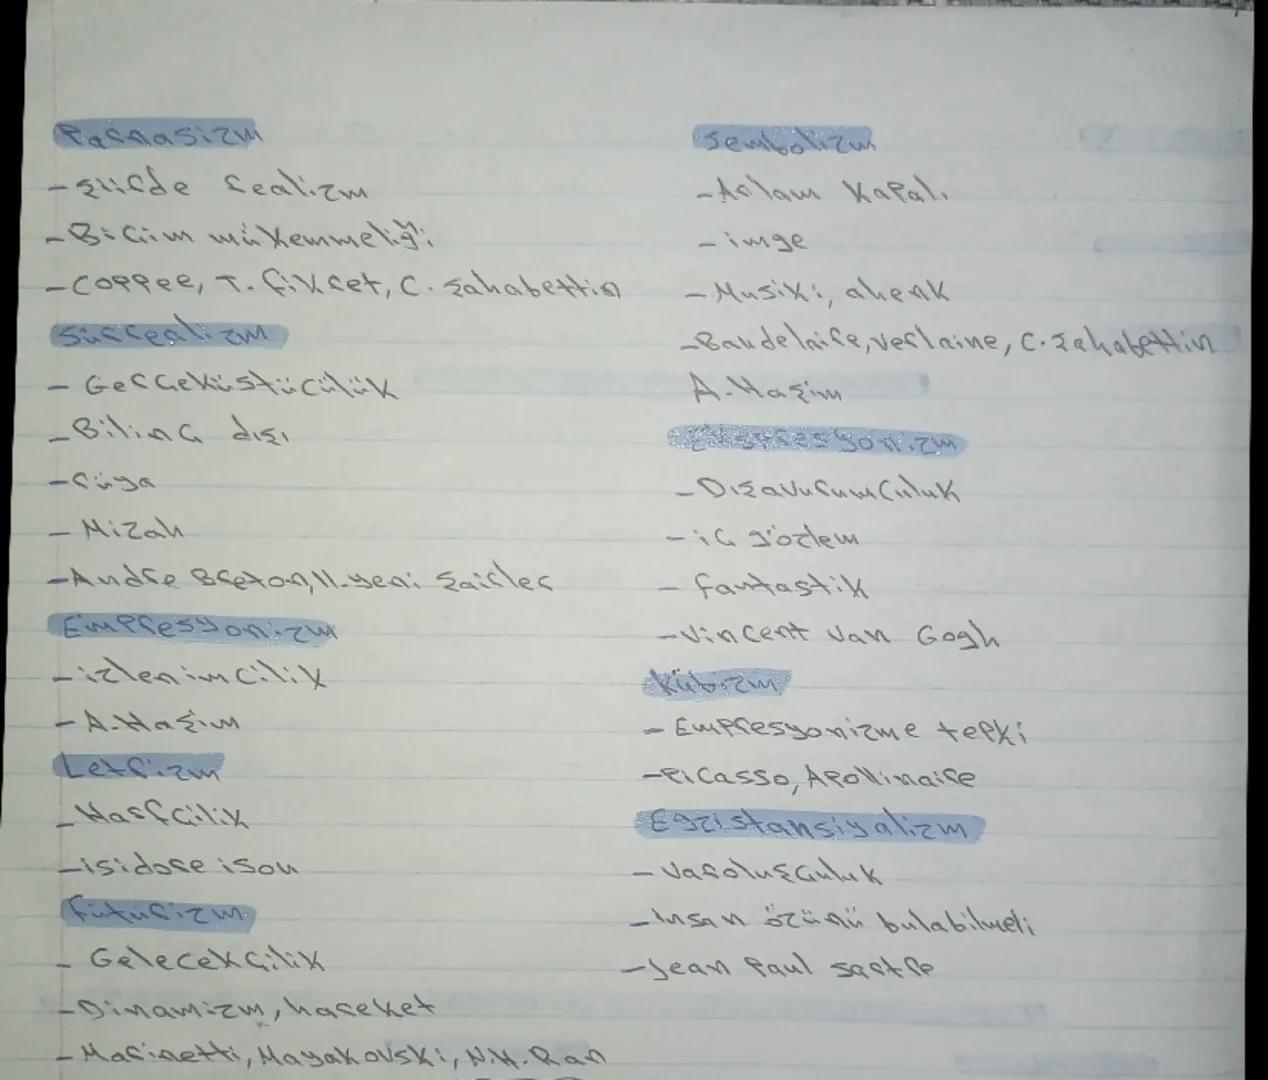 Parnasizm
- şiirde realizm
- Biçim mükemmeliği
- COPPEE, T. fikret, C. şahabettin
Sürrealizm
- Gerçeküstücülük
- Bilinç dışı
- rüya
- Mizah
- Andre Breton, II. yeni şairler
Empresyonizm
- izlenimcilik
- A. Haşim
Letrizm
- Harfçilik
- isidore isou
fütürizm
- Gelecekçilik
- Dinamizm, hareket
- Marinetti, Mayakovski, N.H. Ran
Sembolizm
- Anlam kapalı
- imge
- Musiki, ahenk
- Baudelaire, Verlaine, C. şahabettin
A. Haşim
Ekspresyonizm
- Dışavurumculuk
- iç gözlem
- fantastik
- Vincent Van Gogh
kübizm
- Empresyonizme tepki
- Picasso, Apollinaire
Egzistansiyalizm
- Varoluşçuluk
- insan özünü bulabilmeli
- Jean Paul sartre